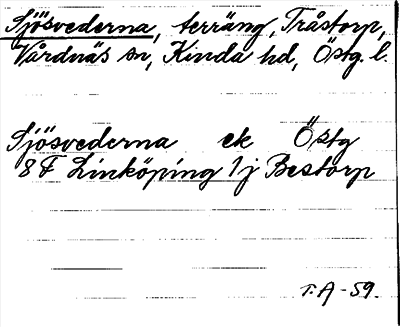 Sjösvederna, terräng, Tråstorp,
Vårdnäs sn, Kinda hd, Östg. l.
Sjösvederna ek Östg
8 F Linköping 1j Bestorp
T.A - 59.